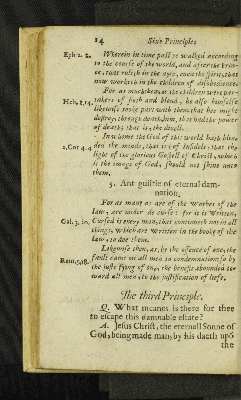 14 Sixe Principles
Eph 2. 2. Wherein in time past ye walked according
to the course of the world, and after the
that ruleth in the ayre, even the spirit, that
now worketh in the children of disobedience.
For as much then as the children were par-
Heb. 2.14. takers of flesh and blood, he also himselfe
likewise tooke part with them, that he might
destroy, through death, him, that had the power
of death, that is, the divell.
In whome the God of this world hath blin-
2. Cor 4.4 ded the minds, that is, of Infidels, that the
light of the glorious Gospell of Christ, which
is the image of God, should not shine unto
them.
5. Ant guiltie of eternal dam-
nation;
For as many as are of the workes of the
law, are under the curse: for it is written,
Gal. 3. 10. Cursed is every man, that continueth not in all
things, which are written in the booke of the
law, to doe them.
Likewise then, as, by the offence of one, the
Rom. 5.18. fault came on all men to condemnation; so by
the justifying of one, the benefit abounded to-
ward all men, to the justification of life.
The third Principle.
Q. What meanes is there for thee
to escape this damnable estate?
A. Jesus Christ, the eternall Sonne of
God, being made man, by his death upō
the